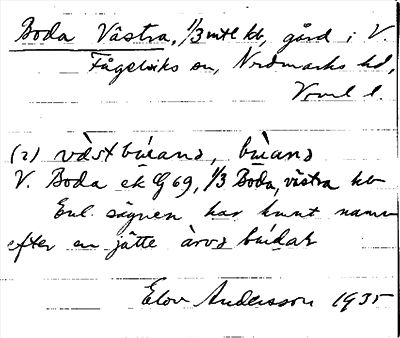 Boda Västra, 1/3 mtl kb, gård i V.
Fågelviks sn, Nordmarks hd,
Vrml l.
(2) västbúand, búand
V. Boda ek Lg 69, 1/3 Boda, västra kb
Enl. sägnen har kunt namn
efter en jätte àrvs búdar
Elov Andersson 1935